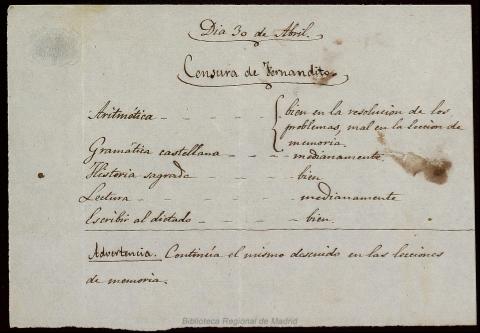 Dia 30 de Abril.
Censura de Fernandito.
Aritmética - - - - bien en la resolucion de los
problemas, mal en la leccion de
memoria.
Gramática castellana - - - medianamente.
Historia sagrada - - - - bien
Lectura - - - - medianamente
Escribir al dictado - - - - bien.
Advertencia. Continúa el mismo descuido en las lecciones
de memoria.
Biblioteca Regional de Madrid